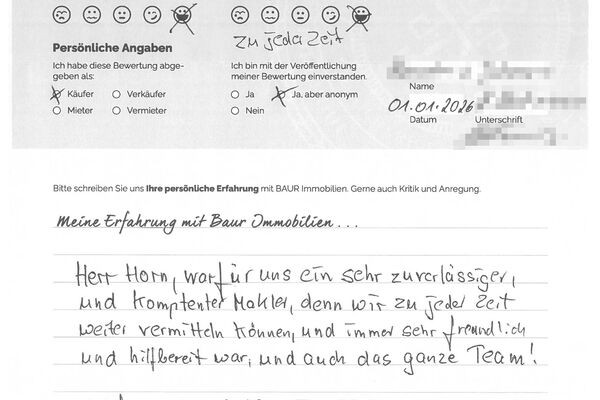 zu jeder Zeit
Persönliche Angaben
Ich habe diese Bewertung abge-
geben als:
Käufer
Verkäufer
Mieter
Vermieter
Ich bin mit der Veröffentlichung
meiner Bewertung einverstanden.
Ja
Ja, aber anonym
Nein
Name
01.01.2026
Datum
Unterschrift
Bitte schreiben Sie uns Ihre persönliche Erfahrung mit BAUR Immobilien. Gerne auch Kritik und Anregung.
Meine Erfahrung mit Baur Immobilien...
Herr Horn, war für uns ein sehr zuverlässiger,
und Komptenter Makler, denn wir zu jeder Zeit
weiter vermitteln können, und immer sehr freundlich
und hilfbereit war, und auch das ganze Team!